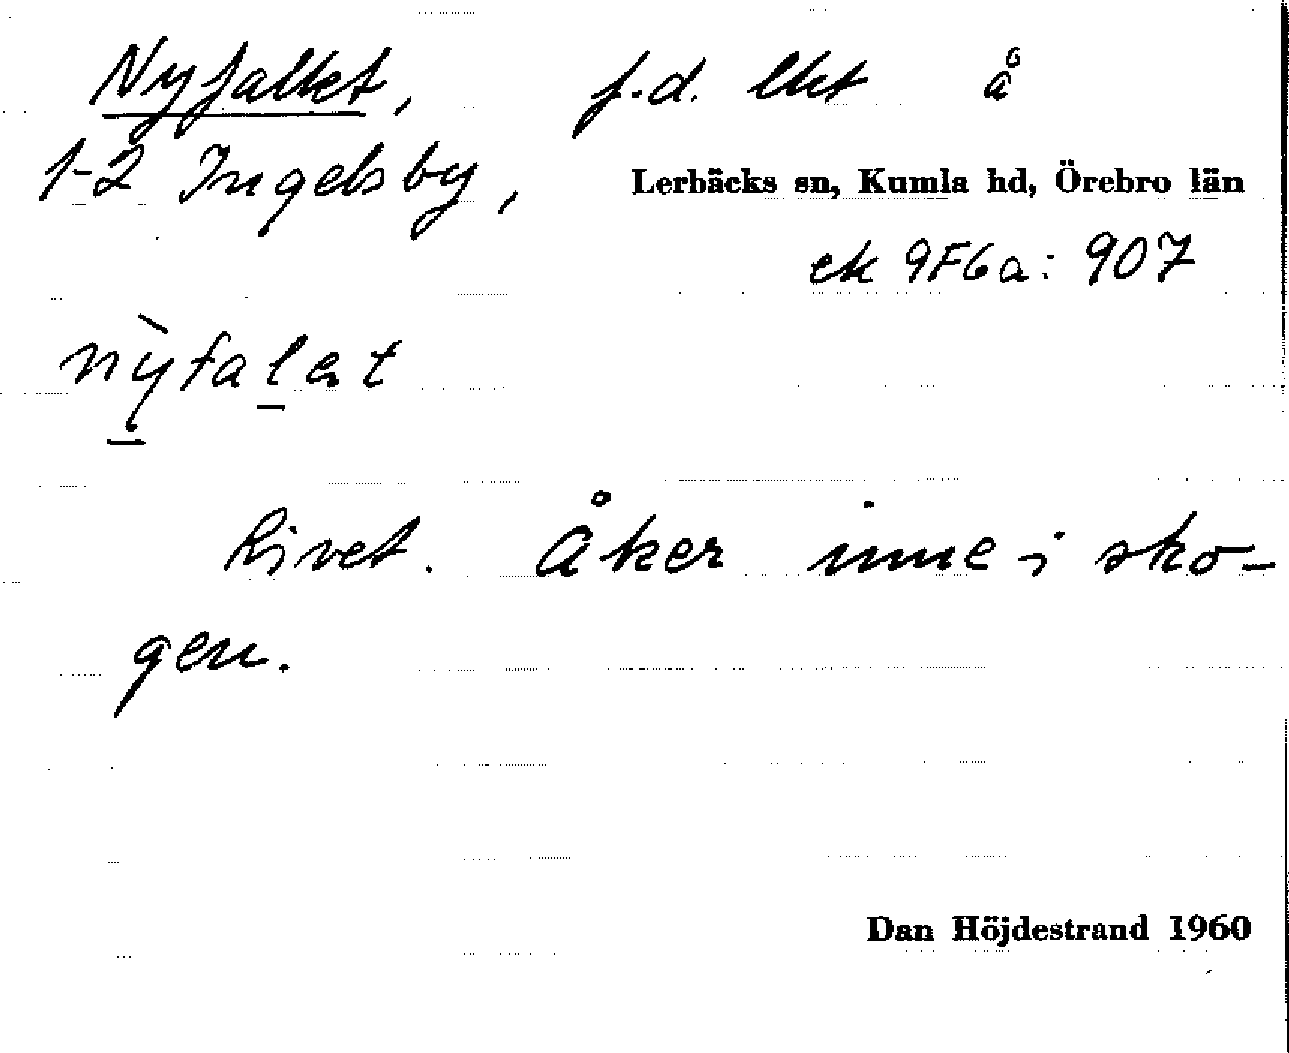 Nyfallet, f.d. lht å
1-2 Ingelsby, Lerbäcks sn, Kumla hd, Örebro län
ek 9F6a: 907
nỳfalət
Rivet. Åker inne i sko-
gen.
Dan Höjdestrand 1960